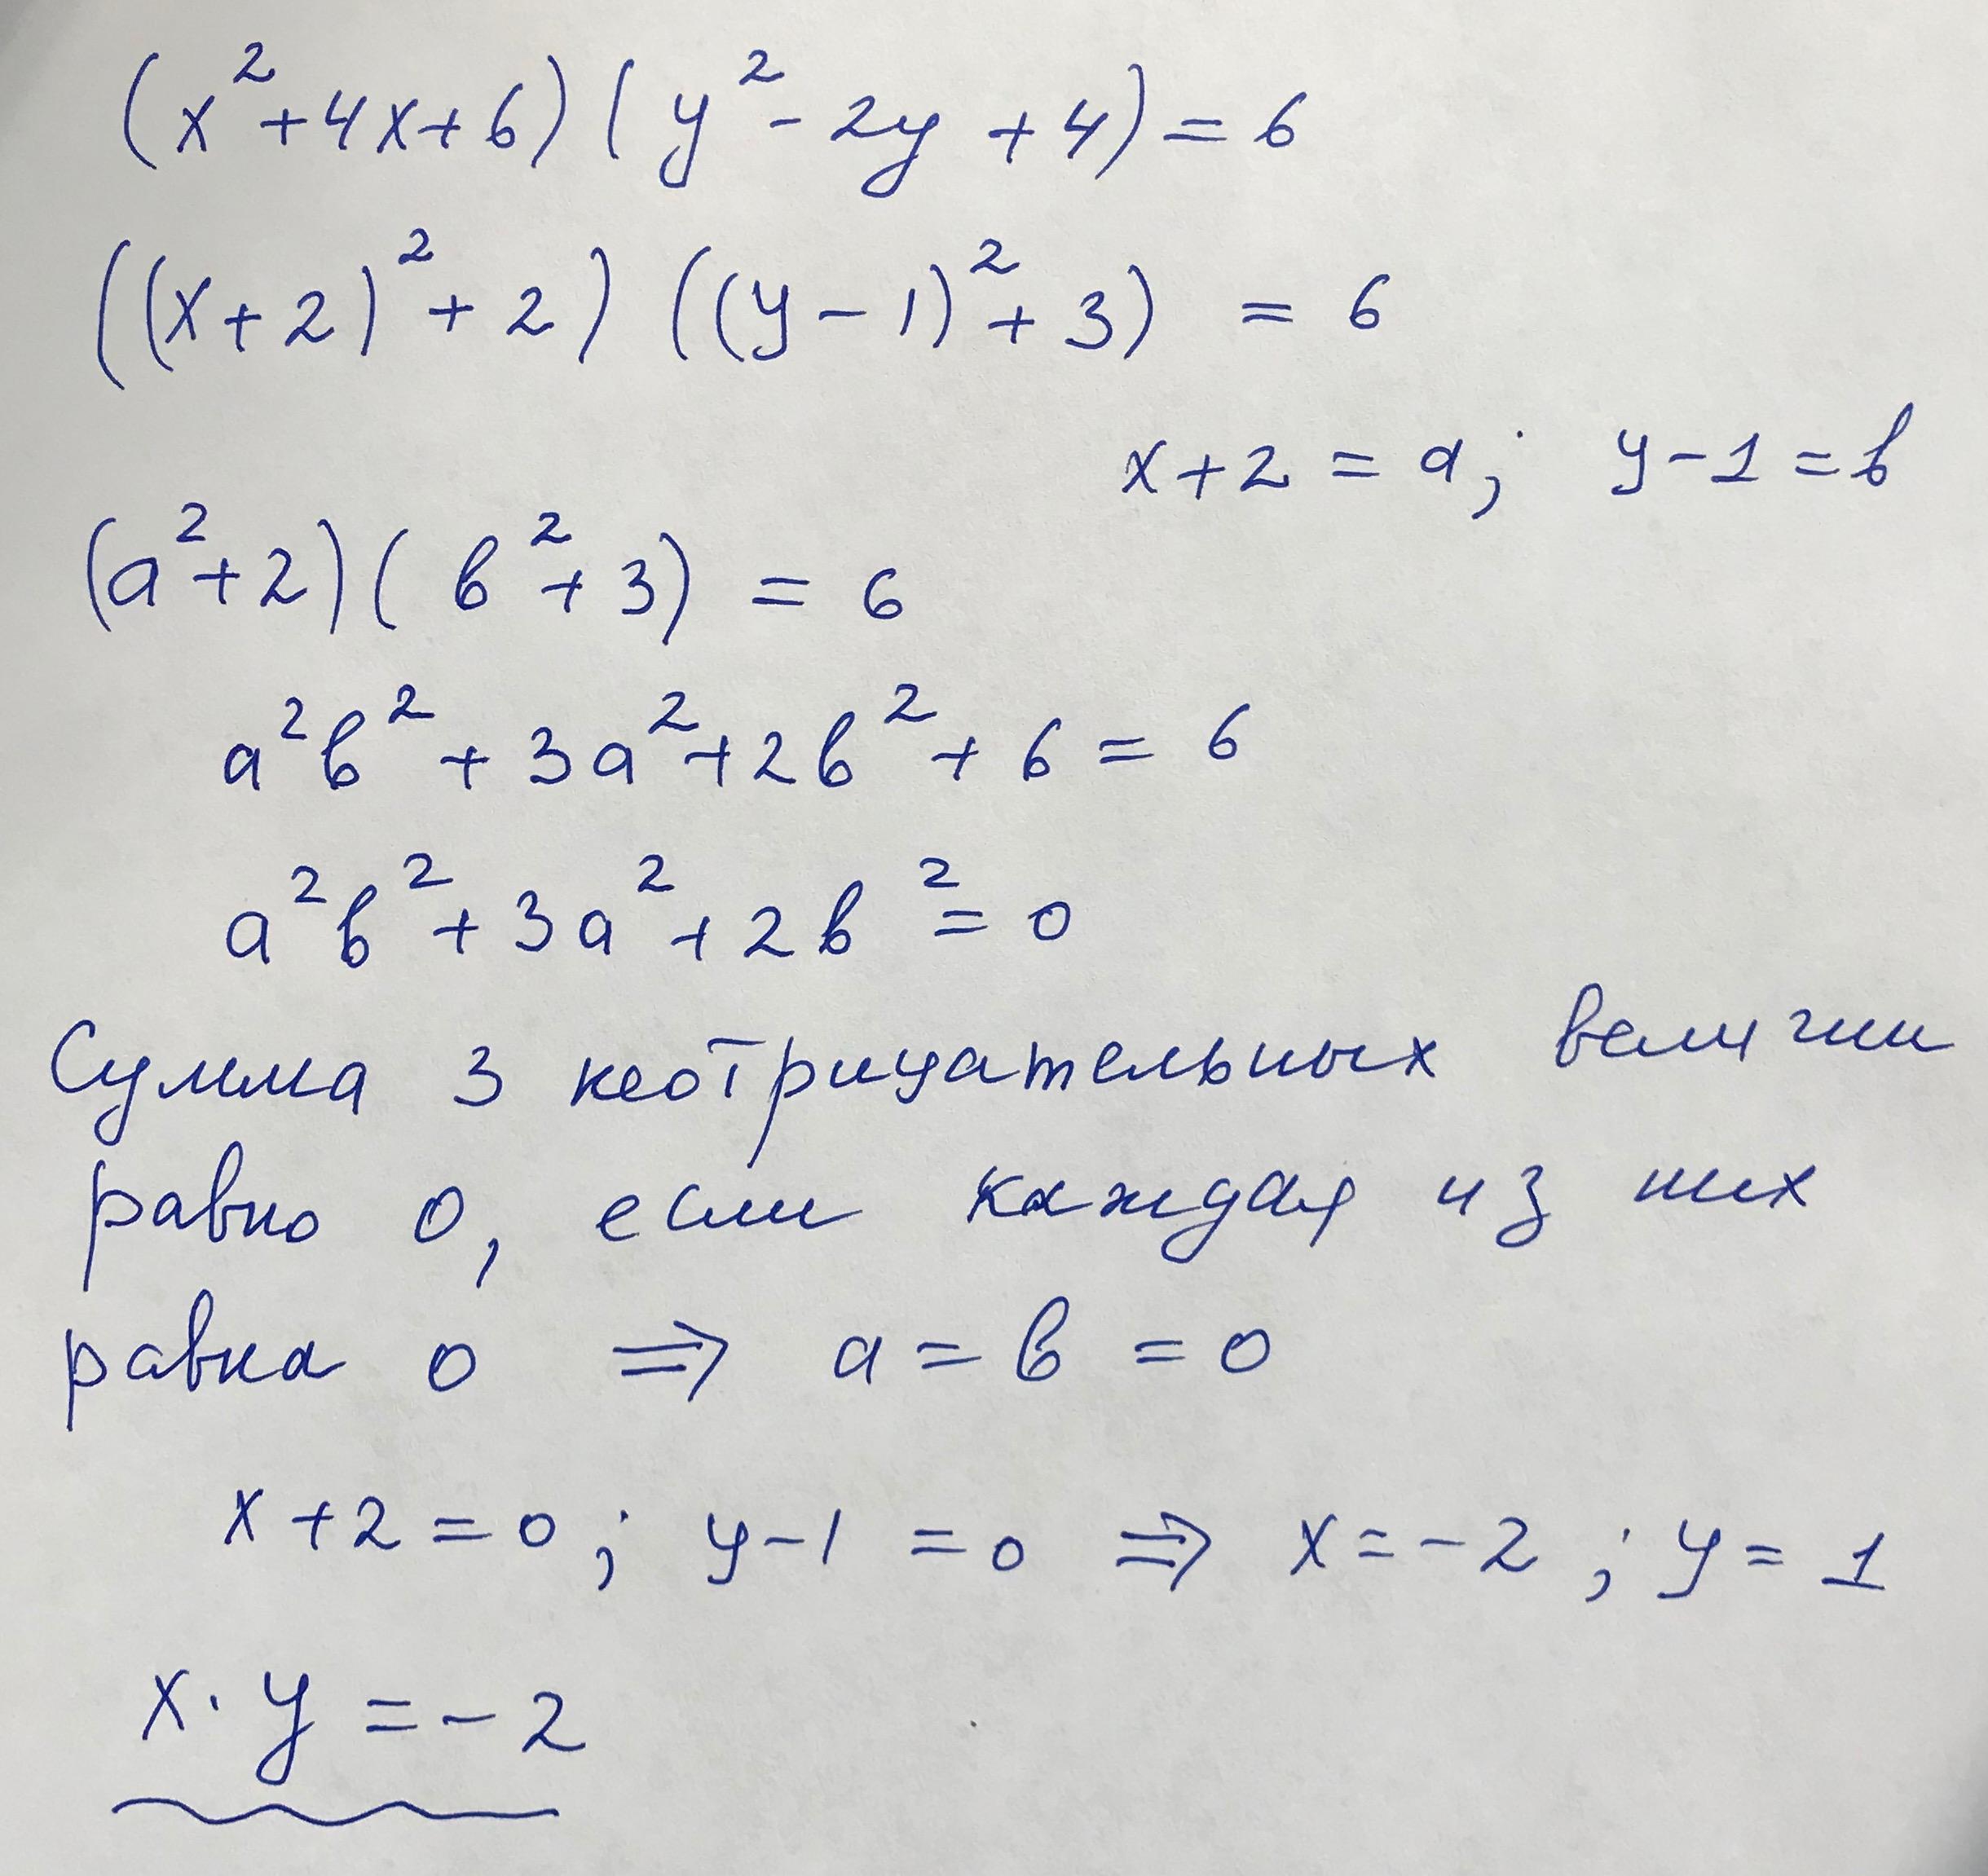 (x²+4x+6)(y²-2y+4)=6
((x+2)²+2)((y-1)²+3) = 6
x+2 = a; y-1=b
(a²+2)(b²+3) = 6
a²b²+3a²+2b²+6=6
a²b²+3a²+2b²=0
Сумма 3 неотрицательных величин
равно 0, если каждая из них
равна 0 ⇒ a=b=0
x+2=0; y-1=0 ⇒ x=-2; y=1
x·y=-2